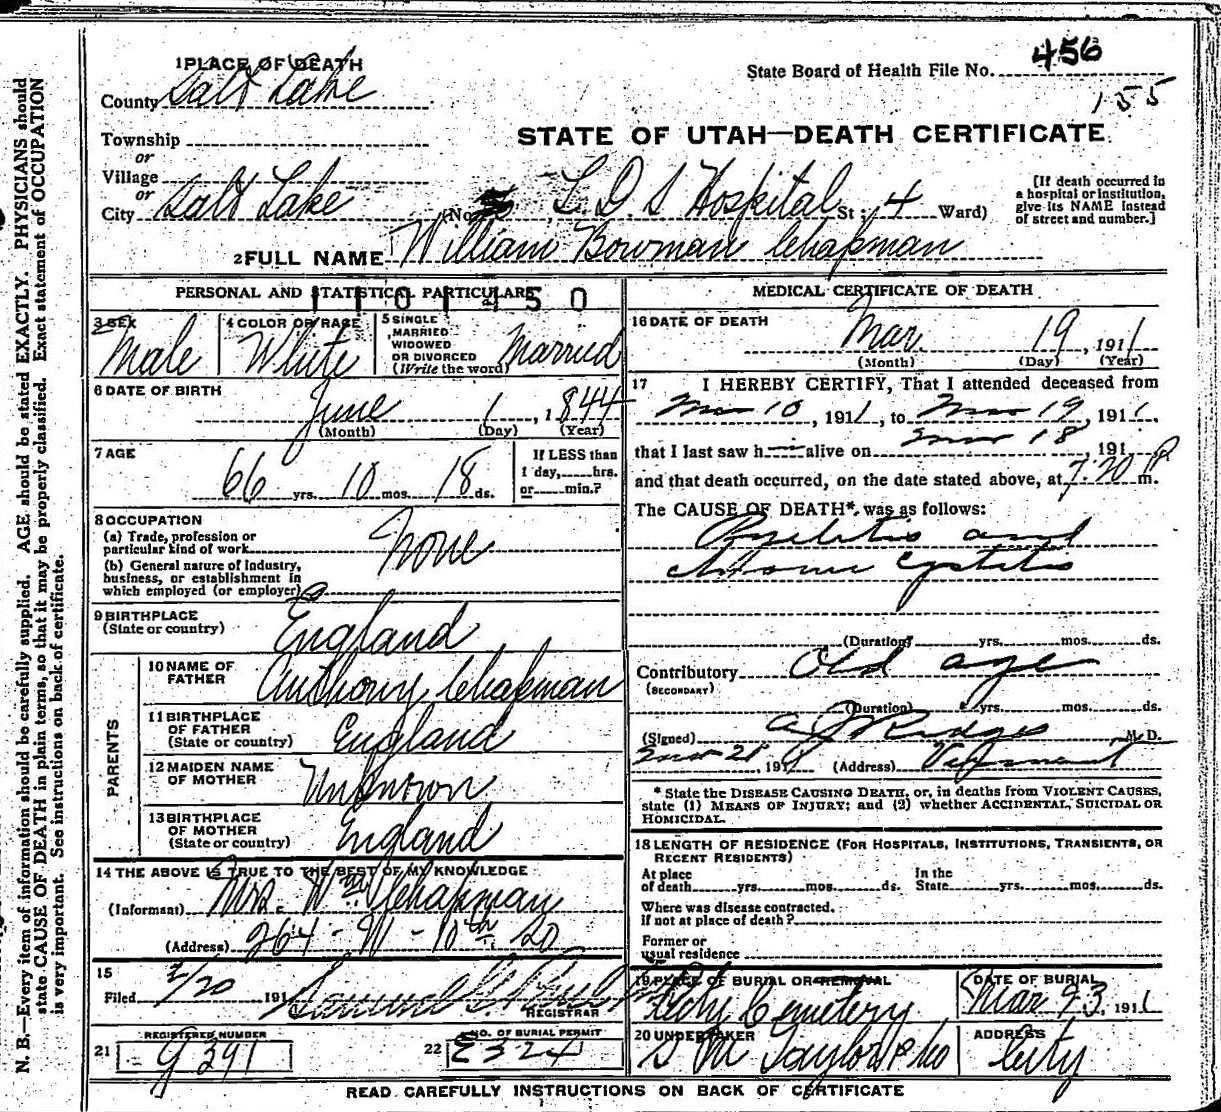 456
State Board of Health File No.
155
1 PLACE OF DEATH
County Salt Lake
Township
or
Village
or
City Salt Lake (No. L. D. S Hospital St; 4 Ward)
STATE OF UTAH—DEATH CERTIFICATE
[If death occurred in
a hospital or institution,
give its NAME instead
of street and number.]
2 FULL NAME William Bowman Chapman
PERSONAL AND STATISTICAL PARTICULARS
1101450
3 SEX
Male
4 COLOR OR RACE
White
5 SINGLE
MARRIED
WIDOWED
OR DIVORCED
(Write the word)
Married
6 DATE OF BIRTH
June 1, 1844
(Month) (Day) (Year)
7 AGE
66 yrs. 10 mos. 18 ds.
If LESS than
1 day, hrs.
or min.?
8 OCCUPATION
(a) Trade, profession or
particular kind of work
None
(b) General nature of industry,
business, or establishment in
which employed (or employer)
9 BIRTHPLACE
(State or country)
England
PARENTS
10 NAME OF
FATHER
Anthony Chapman
11 BIRTHPLACE
OF FATHER
(State or country)
England
12 MAIDEN NAME
OF MOTHER
Unknown
13 BIRTHPLACE
OF MOTHER
(State or country)
England
14 THE ABOVE IS TRUE TO THE BEST OF MY KNOWLEDGE
(Informant) Mrs. Wm Chapman
(Address) 264 - W - 10th So
15
Filed 3/20 191 Samuel G.
REGISTRAR
REGISTERED NUMBER
21 9391
NO. OF BURIAL PERMIT
22 E324
MEDICAL CERTIFICATE OF DEATH
16 DATE OF DEATH
Mar 19, 1911
(Month) (Day) (Year)
17 I HEREBY CERTIFY, That I attended deceased from
Mar 10, 1911, to Mar 19, 1911,
that I last saw h alive on Mar 18, 191
and that death occurred, on the date stated above, at 7.20 P m.
The CAUSE OF DEATH* was as follows:
Pyelitis and
chronic Cystitis
(Duration) yrs. mos. ds.
Contributory Old age
(SECONDARY)
(Duration) yrs. mos. ds.
(Signed) M.D.
Mar 21, 191 (Address)
* State the DISEASE CAUSING DEATH, or, in deaths from VIOLENT CAUSES,
state (1) MEANS OF INJURY; and (2) whether ACCIDENTAL, SUICIDAL OR
HOMICIDAL.
18 LENGTH OF RESIDENCE (FOR HOSPITALS, INSTITUTIONS, TRANSIENTS, OR
RECENT RESIDENTS)
At place
of death yrs. mos. ds.
In the
State yrs. mos. ds.
Where was disease contracted,
if not at place of death?
Former or
usual residence
19 PLACE OF BURIAL OR REMOVAL
City Cemetery
DATE OF BURIAL
Mar 23, 1911
20 UNDERTAKER
S M Taylor & Co
ADDRESS
City
READ CAREFULLY INSTRUCTIONS ON BACK OF CERTIFICATE
N. B.—Every item of information should be carefully supplied. AGE should be stated EXACTLY. PHYSICIANS should
state CAUSE OF DEATH in plain terms, so that it may be properly classified. Exact statement of OCCUPATION
is very important. See instructions on back of certificate.